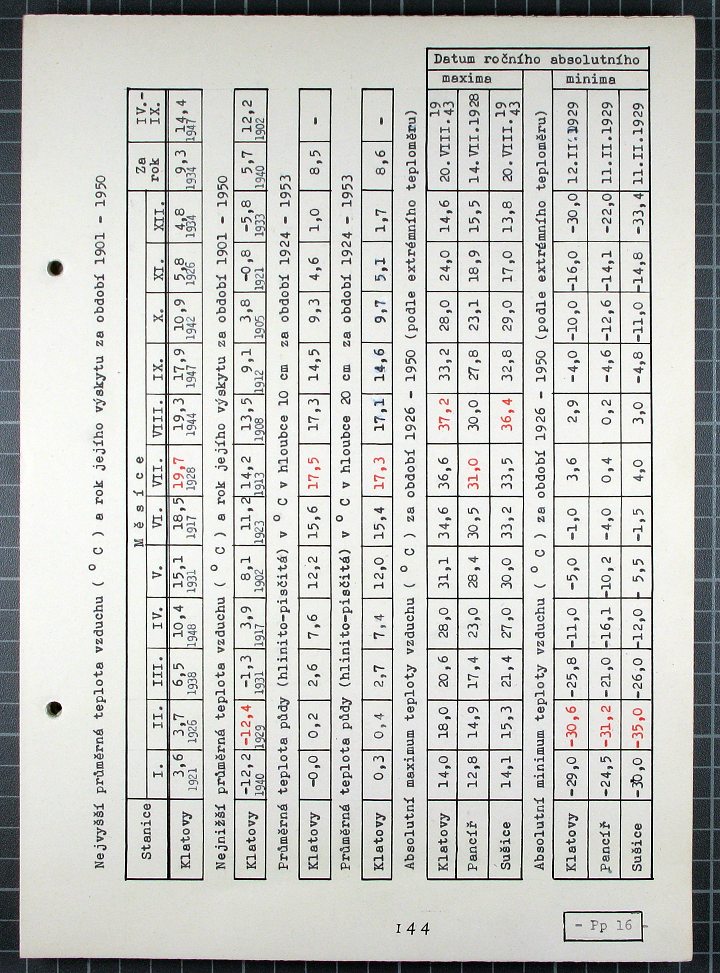 Nejvyšší průměrná teplota vzduchu ( °C ) a rok jejího výskytu za období 1901 - 1950
Stanice Měsíce Za rok IV.-IX.
I. II. III. IV. V. VI. VII. VIII. IX. X. XI. XII.
Klatovy 3,6 3,7 6,5 10,4 15,1 18,5 19,7 19,3 17,9 10,9 5,8 4,8 9,3 14,4
1921 1926 1938 1948 1931 1917 1928 1944 1947 1942 1926 1934 1934 1947
Nejnižší průměrná teplota vzduchu ( °C ) a rok jejího výskytu za období 1901 - 1950
Klatovy -12,2 -12,4 -1,3 3,9 8,1 11,2 14,2 13,5 9,1 3,8 -0,8 -5,8 5,7 12,2
1940 1929 1931 1917 1902 1923 1913 1908 1912 1905 1921 1933 1940 1902
Průměrná teplota půdy (hlinito-pisčitá) v °C v hloubce 10 cm za období 1924 - 1953
Klatovy -0,0 0,2 2,6 7,6 12,2 15,6 17,5 17,3 14,5 9,3 4,6 1,0 8,5 -
Průměrná teplota půdy (hlinito-pisčitá) v °C v hloubce 20 cm za období 1924 - 1953
Klatovy 0,3 0,4 2,7 7,4 12,0 15,4 17,3 17,1 14,6 9,7 5,1 1,7 8,6 -
Absolutní maximum teploty vzduchu ( °C ) za období 1926 - 1950 (podle extrémního teploměru)
Datum ročního absolutního
maxima
Klatovy 14,0 18,0 20,6 28,0 31,1 34,6 36,6 37,2 33,2 28,0 24,0 14,6 20.VIII.1943
Pancíř 12,8 14,9 17,4 23,0 28,4 30,5 31,0 30,0 27,8 23,1 18,9 15,5 14.VII.1928
Sušice 14,1 15,3 21,4 27,0 30,0 33,2 33,5 36,4 32,8 29,0 17,0 13,8 20.VIII.1943
Absolutní minimum teploty vzduchu ( °C ) za období 1926 - 1950 (podle extrémního teploměru)
minima
Klatovy -29,0 -30,6 -25,8 -11,0 -5,0 -1,0 3,6 2,9 -4,0 -10,0 -16,0 -30,0 12.II.1929
Pancíř -24,5 -31,2 -21,0 -16,1 -10,2 -4,0 0,4 0,2 -4,6 -12,6 -14,1 -22,0 11.II.1929
Sušice -30,0 -35,0 -26,0 -12,0 - 5,5 -1,5 4,0 3,0 -4,8 -11,0 -14,8 -33,4 11.II.1929
144
- Pp 16 -